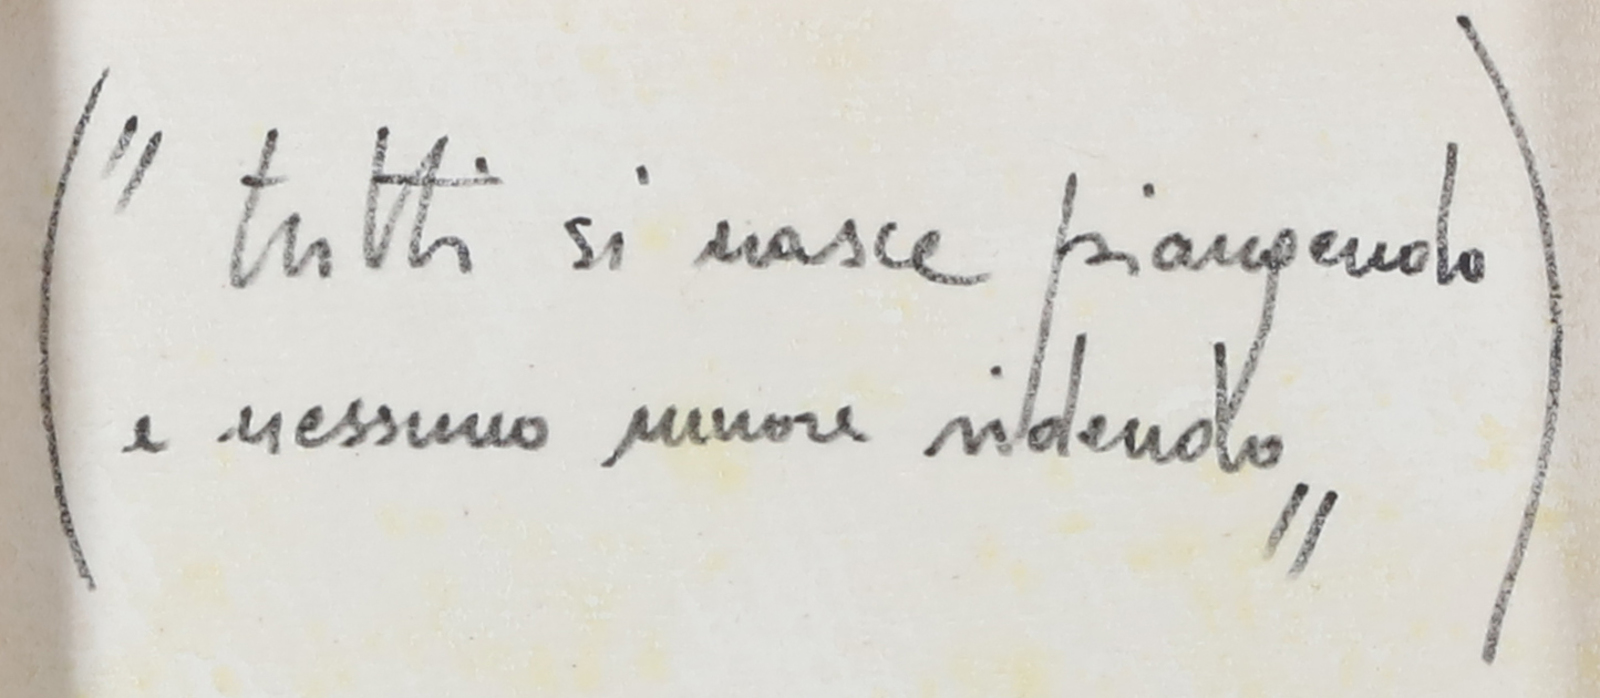 ("tutti si nasce piangendo
e nessuno muore ridendo")